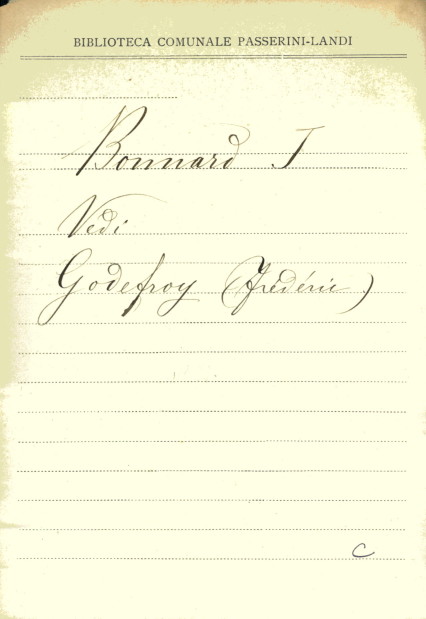 BIBLIOTECA COMUNALE PASSERINI-LANDI
Bonnard J
Vedi
Godefroy (Frédéric)
C